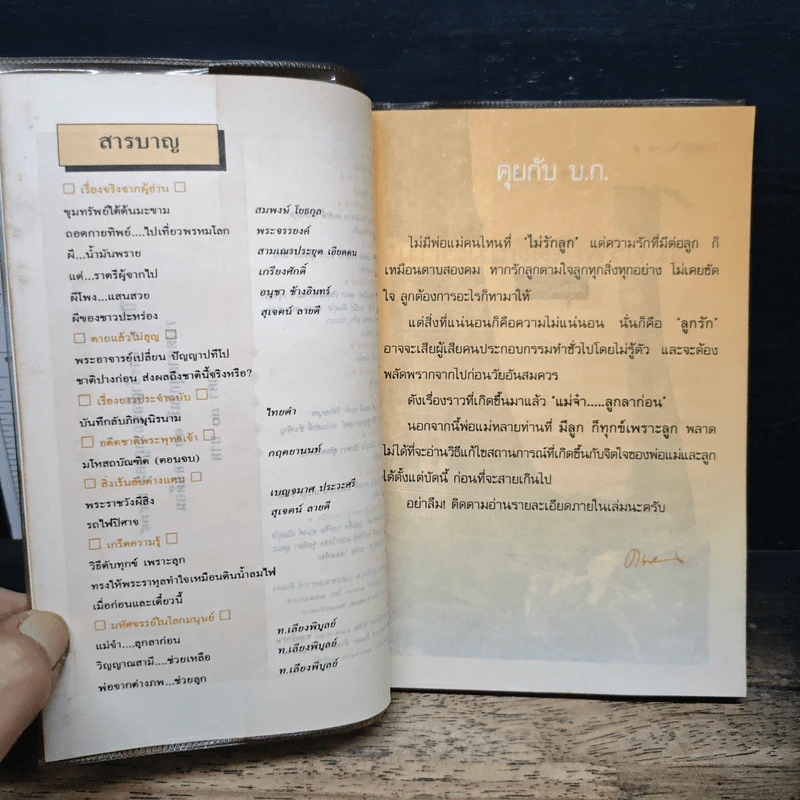 สารบาญ
เรื่องจริงจากผู้อ่าน
ขุมทรัพย์ใต้ต้นมะขาม สมพงษ์ โยธกุล
ถอดกายทิพย์....ไปเที่ยวพรหมโลก พระจรรยงค์
ผี...น้ำมันพราย สามเณรประยุค เอียดคน
แด่...ราตรีผู้จากไป เกรียงศักดิ์
ผีโพง....แสนสวย อนุชา ช้างอินทร์
ผีของชาวปะหร่อง สุเจตน์ ลายดี
ตายแล้วไม่สูญ
พระอาจารย์เปลี่ยน ปัญญาปทีโป
ชาติปางก่อน ส่งผลถึงชาตินี้จริงหรือ?
เรื่องยาวประจำฉบับ
บันทึกลับภิกษุนิรนาม ไทยดำ
อดีตชาติพระพุทธเจ้า
มโหสถบัณฑิต (ตอนจบ) กฤตยานนท์
สิ่งเร้นลับต่างแดน
พระราชวังผีสิง เบญจมาศ ประวะศรี
รถไฟปีศาจ สุเจตน์ ลายดี
เกร็ดความรู้
วิธีดับทุกข์ เพราะลูก
ทรงให้พระราหุลทำใจเหมือนดินน้ำลมไฟ
เมื่อก่อนและเดี๋ยวนี้
มหัศจรรย์ในโลกมนุษย์
แม่จ๋า....ลูกลาก่อน ท.เลียงพิบูลย์
วิญญาณสามี....ช่วยเหลือ ท.เลียงพิบูลย์
พ่อจากต่างภพ...ช่วยลูก ท.เลียงพิบูลย์
คุยกับ บ.ก.
ไม่มีพ่อแม่คนไหนที่ "ไม่รักลูก" แต่ความรักที่มีต่อลูก ก็
เหมือนดาบสองคม หากรักลูกตามใจลูกทุกสิ่งทุกอย่าง ไม่เคยขัด
ใจ ลูกต้องการอะไรก็หามาให้
แต่สิ่งที่แน่นอนก็คือความไม่แน่นอน นั่นก็คือ "ลูกรัก"
อาจจะเสียผู้เสียคนประกอบกรรมทำชั่วไปโดยไม่รู้ตัว และจะต้อง
พลัดพรากจากไปก่อนวัยอันสมควร
ดังเรื่องราวที่เกิดขึ้นมาแล้ว "แม่จ๋า.....ลูกลาก่อน"
นอกจากนี้พ่อแม่หลายท่านที่ มีลูก ก็ทุกข์เพราะลูก พลาด
ไม่ได้ที่จะอ่านวิธีแก้ไขสถานการณ์ที่เกิดขึ้นกับจิตใจของพ่อแม่และลูก
ได้ตั้งแต่บัดนี้ ก่อนที่จะสายเกินไป
อย่าลืม! ติดตามอ่านรายละเอียดภายในเล่มนะครับ